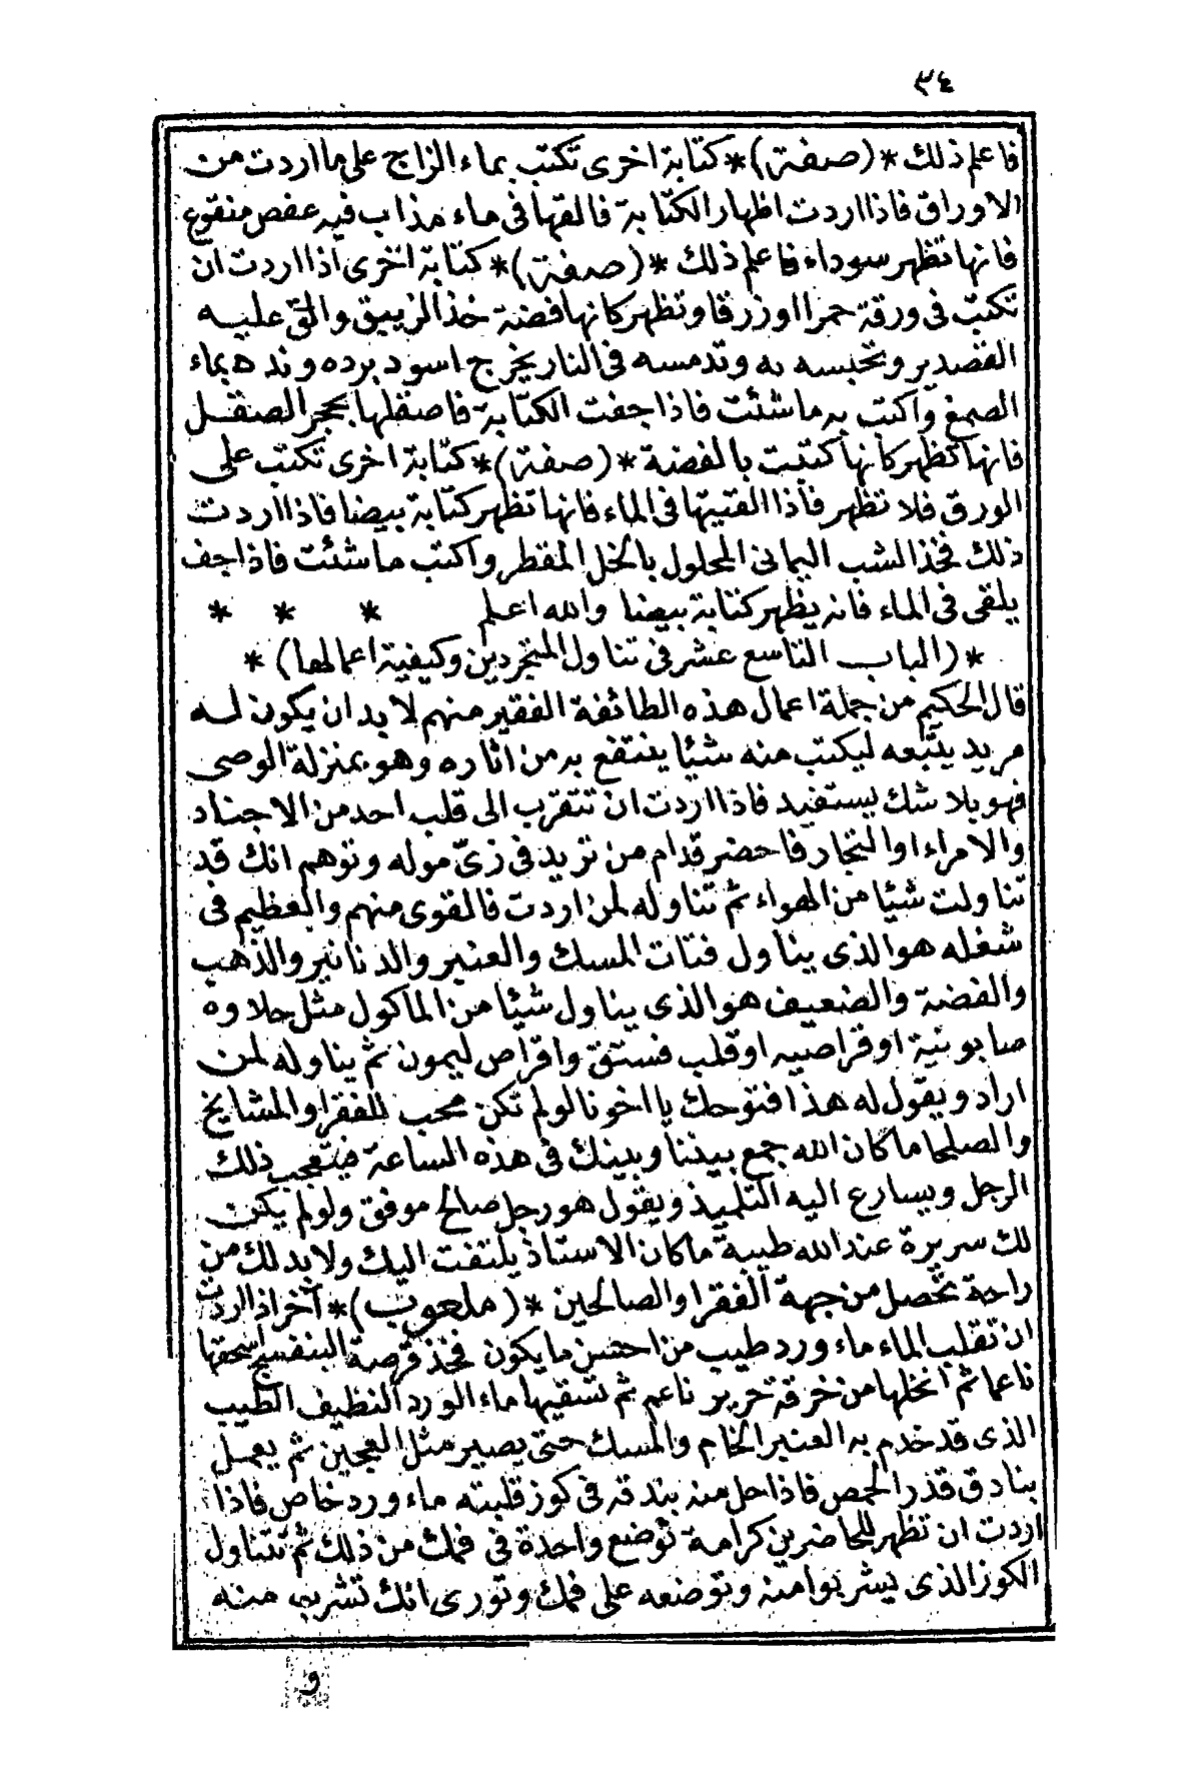 ٣٤
فاعلم ذلك * (صفة) * كتابة اخرى تكتب بماء الزاج على ما اردت من
الاوراق فاذا اردت اظهار الكتابة فالقها فى ماء مذاب فيه عفص منقوع
فانها تظهر سوداء فاعلم ذلك * (صفة) * كتابة اخرى اذا اردت ان
تكتب فى ورقة حمرا او زرقا وتظهر كانها فضة خذ الزيبق والق عليه
القصدير وتحبسه به وتدمسه فى النار يخرج اسود برده ونده بماء
الصمغ واكتب به ما شئت فاذا جفت الكتابة فاصقلها بحجر الصقل
فانها تظهر كانها كتبت بالفضة * (صفة) * كتابة اخرى تكتب على
الورق فلا تظهر فاذا القيتها فى الماء فانها تظهر كتابة بيضا فاذا اردت
ذلك فخذ الشب اليمانى المحلول بالخل المقطر واكتب ما شئت فاذا جف
يلقى فى الماء فانه يظهر كتابة بيضا والله اعلم * * *
* (الباب التاسع عشر فى تناول المتجردين وكيفية اعمالها) *
قال الحكيم من جملة اعمال هذه الطائفة الفقير منهم لا بد ان يكون له
مريد يتبعه ليكتب منه شيئا ينتفع به من اثاره وهو بمنزلة الوصى
فهو بلا شك يستفيد فاذا اردت ان تتقرب الى قلب احد من الاجناد
والامراء او التجار فاحضر قدام من تريد فى زىّ موله وتوهم انك قد
تناولت شيئا من الهواء ثم تناوله لمن اردت فالقوى منهم والعظيم فى
شغله هو الذى يناول فتات المسك والعنبر والدنانير والذهب
والفضة والضعيف هو الذى يناول شيئا من الماكول مثل حلاوه
صابونية او قراصيه او قلب فستق واقراص ليمون ثم يناوله لمن
اراد ويقول له هذا فتوحك يا اخونا لو لم تكن محب للفقرا والمشايخ
والصلحا ما كان الله جمع بيننا وبينك فى هذه الساعة فيتعجب ذلك
الرجل ويسارع اليه التلميذ ويقول هو رجل صالح موفق ولو لم يكن
لك سريرة عند الله طيبة ما كان الاستاذ يلتفت اليك ولا بد لك من
راحة تحصل من جهة الفقرا والصالحين * (ملعوب) * آخر اذا اردت
ان تقلب الماء ماء ورد طيب من احسن ما يكون فخذ قرصة البنفسج اسحقها
ناعما ثم انخلها من خرقة حرير ناعم ثم تسقيها ماء الورد النظيف الطيب
الذى قد خدم به العنبر الخام والمسك حتى يصير مثل العجين ثم يعمل
بنادق قدر الحمص فاذا حل منه بندقه فى كوز قلبته ماء ورد خاص فاذا
اردت ان تظهر للحاضرين كرامة توضع واحدة فى فمك من ذلك ثم تتناول
الكوز الذى يشربوا منه وتوضعه على فمك وتورى انك تشرب منه
و